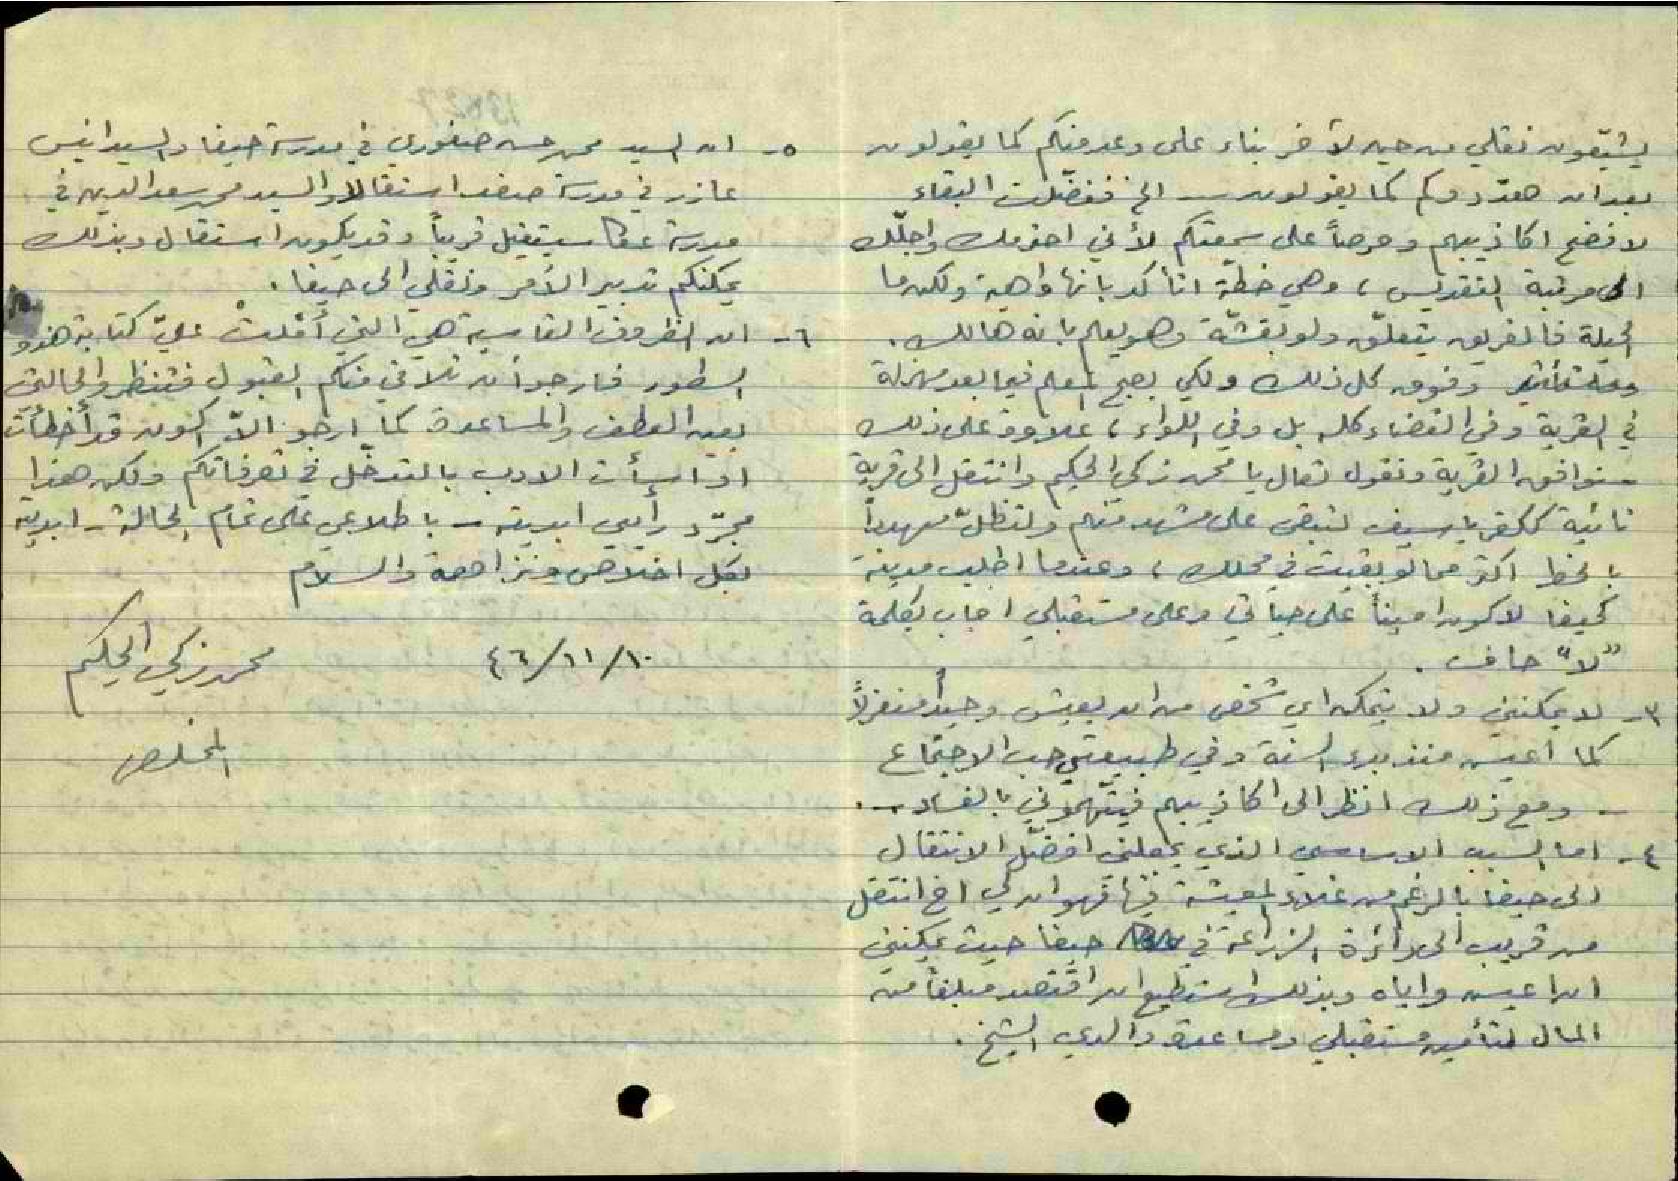 يشيّعون نقلي من حين لآخر بناء على وعد منكم كما يقولون
بعد ان هددوكم كما يقولون ـ الخ ففضّلت البقاء
لافضح اكاذيبهم وحرصاً على سمعتكم لأني احترمك واجلّك
الى مرتبة التقديس ، وهي خطة اتأكد بانها واهية ولكن ما
الحيلة فالغريق يتعلّق ولو بقشّة وهو يعلم بانه هالك .
وفوق كل ذلك ولكي يصبح المعلم فيما بعد مهزلة
في القرية وفي القضاء كله بل وفي اللواء ، علاوة على ذلك
ـ نوافق القرية ونقول تعال يا محمد زكي الحكيم وانتقل الى قرية
نائية ككفر ياسيف لتبقى على مشهد منهم ولتظلّ مهدداً
بالخطر اكثر مما لو بقيت في محلك ، وعندما اطلب مدينة
كحيفا لاكون اميناً على حياتي وعلى مستقبلي اجاب بكلمة
"لا" جاف .
٣ـ لا يمكنني ولا يتمكن اي شخص من ان يعيش وحيداً منعزلاً
كما اعيش منذ بدء السنة وفي طبيعتي حب الاجتماع
ـ ومع ذلك انظر الى اكاذيبهم فيتّهموني بالفساد ـ .
٤ـ اما السبب الاساسي الذي يجعلني افضّل الانتقال
الى حيفا بالرغم من غلاء المعيشة فيها فهو ان لي اخ انتقل
من قريب الى دائرة الزراعة في حيفا حيث يمكنني
ان اعيش واياه وبذلك استطيع ان اقتصد مبلغاً من
المال لتأمين مستقبلي ومساعدة والدي الشيخ .
٥ـ ان السيد محمد حسن صفوري في مدرسة حيفا والسيد انيس
عازر في مدرسة صفد استقالا والسيد محمد سعد الدين في
مدرسة عكا سيستقيل قريباً وقد يكون استقال وبذلك
يمكنكم تدبير الأمر ونقلي الى حيفا .
٦ـ ان الظروف القاسية هي التي أملت عليّ كتابة هذه
السطور فارجو ان تلاقي منكم القبول فتنظروا لحالتي
بعين العطف والمساعدة كما ارجو الاّ اكون قد أخطأت
او اسأت الادب بالتدخّل في تصرفاتكم ولكن هذا
مجرّد رأيي ابديته ـ باطلاعي على تمام الحالة ـ ابديه
بكل اخلاص ونزاهة والسلام
١٠/١١/٤٦
محمد زكي الحكيم
المخلص